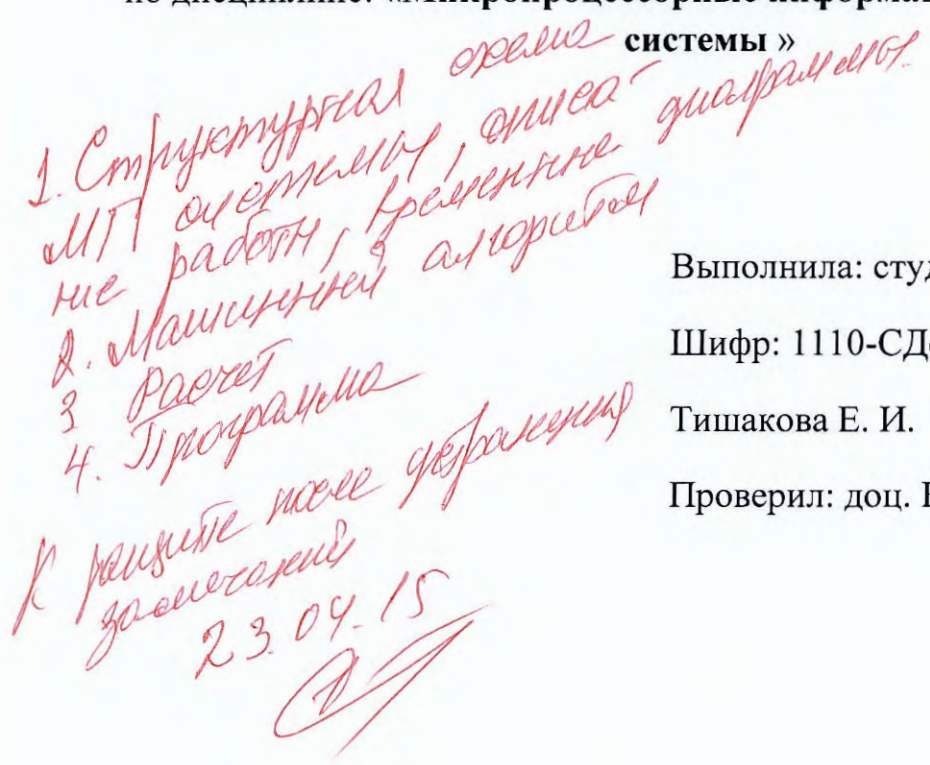 по дисциплине: «Микропроцессорные информа
системы »
1. Структурная схема
МП системы, описа-
ние работы, временные диаграммы.
2. Машинный алгоритм
3 Расчет
4. Программа
К защите после устранения
замечаний
23.04.15
Выполнила: студ
Шифр: 1110-СД
Тишакова Е. И.
Проверил: доц.